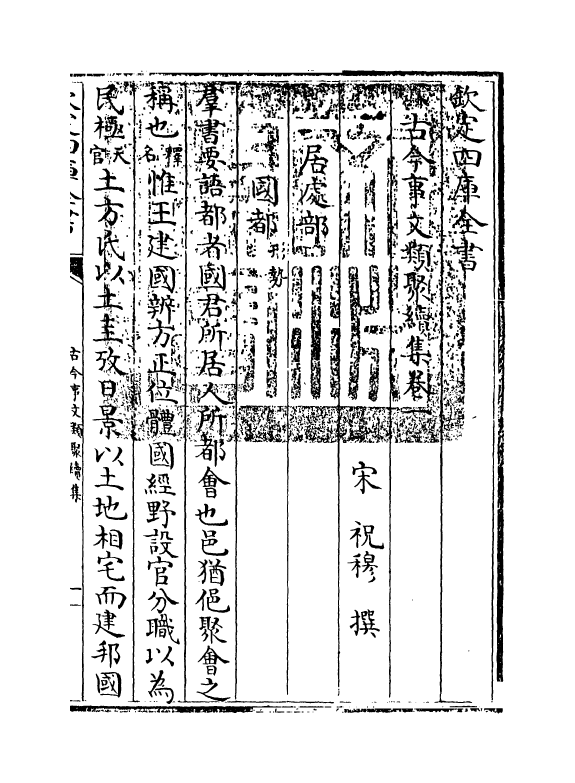 欽定四庫全書
古今事文類聚續集卷一
宋 祝穆 撰
居處部
國都形勢
羣書要語都者國君所居人所都會也邑猶俋聚會之
稱也釋名惟王建國辨方正位體國經野設官分職以為
民極天官土方氏以土圭攷日景以土地相宅而建邦國
古今事文類聚續集
一